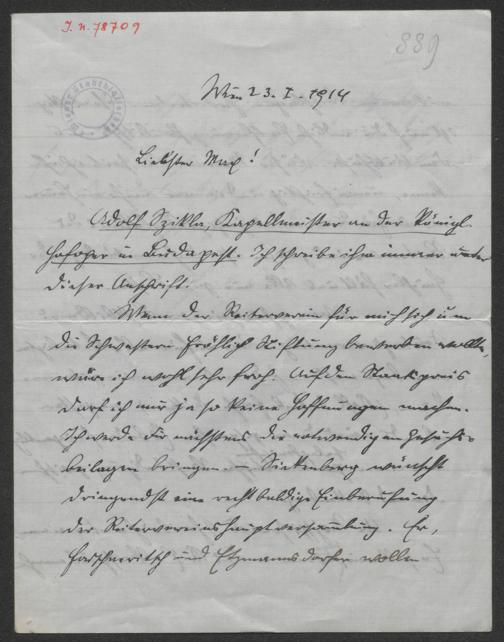 J. N. 78709
889
Wien 23. I. 1914
Liebster Max!
Adolf Szikla, Kapellmeister an der Königl.
Hofoper in Budapest. Ich schreibe ihm immer unter
dieser Anschrift.
Wenn der Reiterverein für mich sich um
die Schwestern Fröhlich Stiftung bewerben wollte,
wäre ich wohl sehr froh. Auf den Staatspreis
darf ich mir ja so keine Hoffnungen machen.
Ich werde Dir nächstens die notwendigen Gesuchs-
beilagen bringen. – wünscht
dringendst eine recht baldige Einberufung
der Reitervereinshauptversammlung. Er,
und Etzmannsdorfer wollen